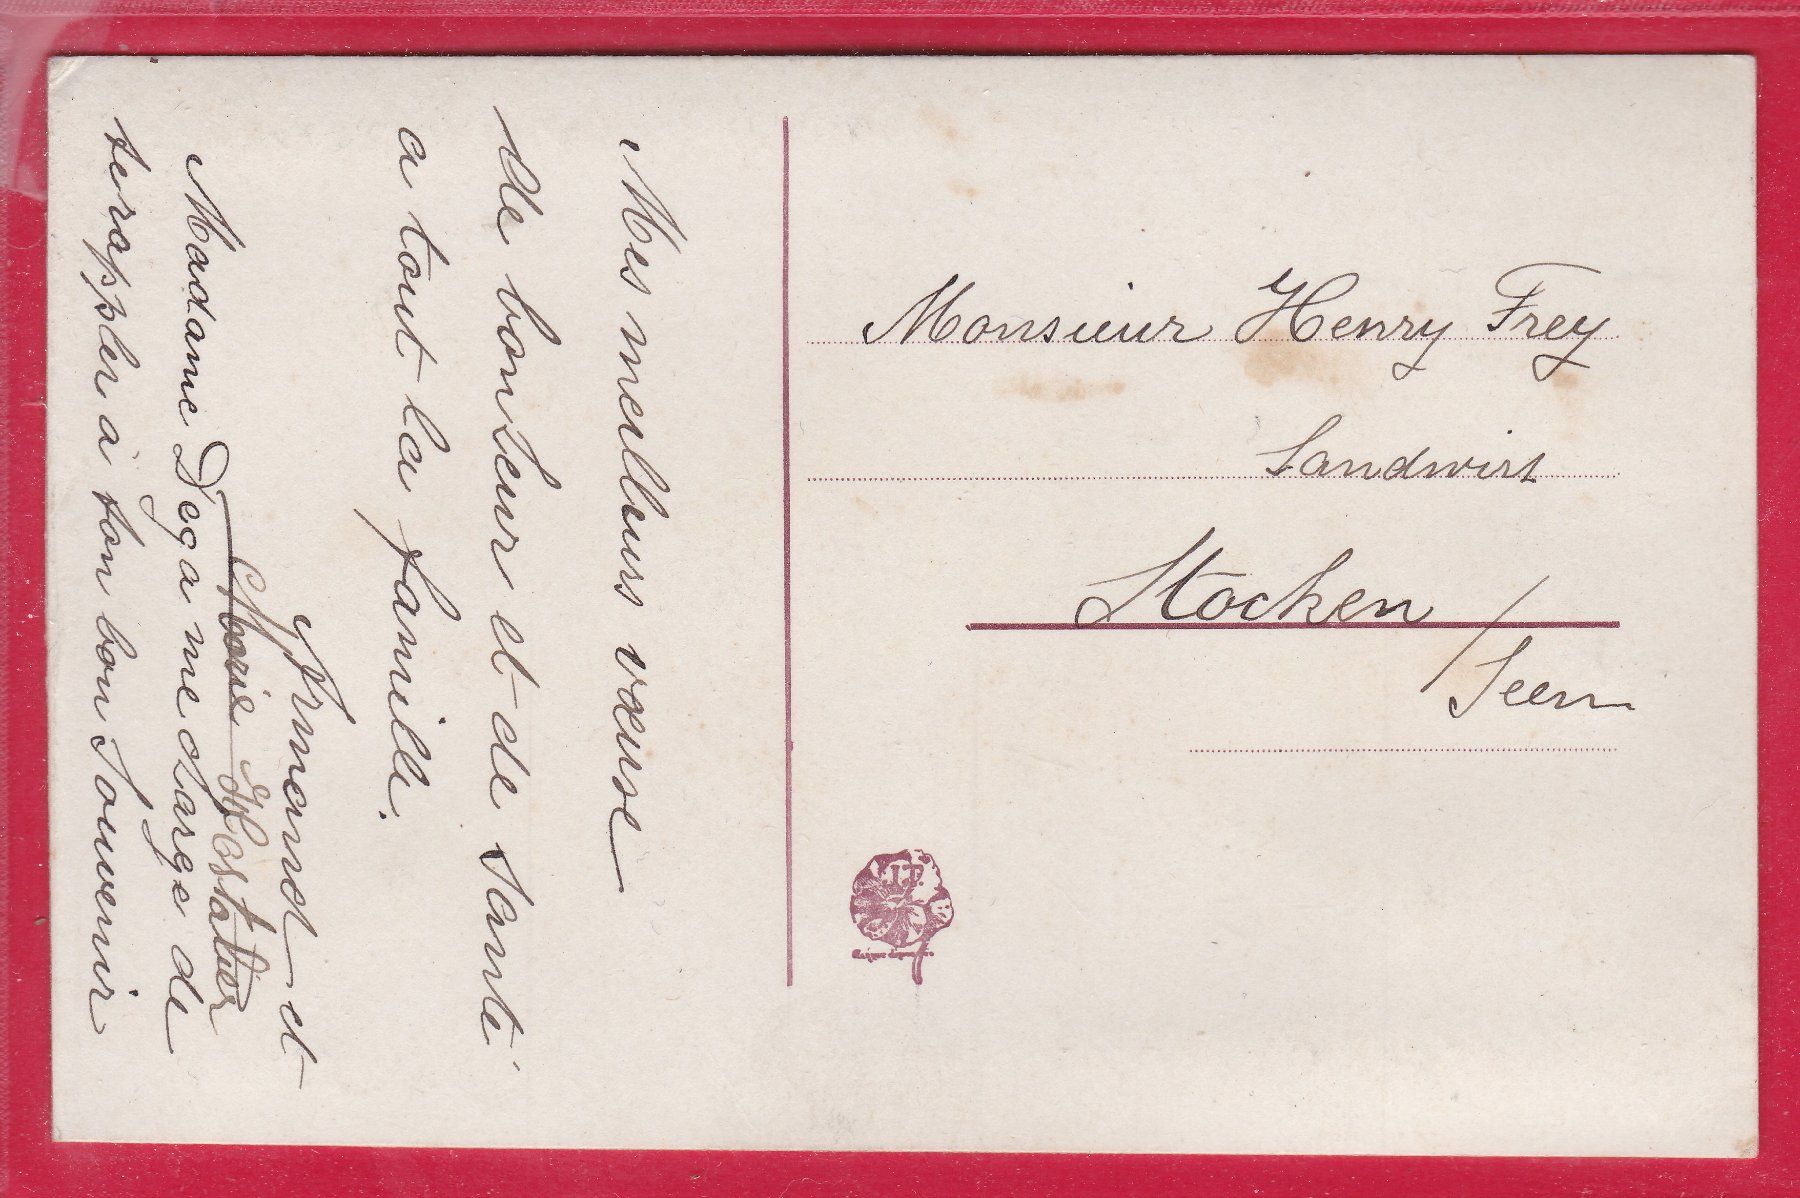 Mes meilleurs vœuxe
de bonheur et de Santé
a tout la famille.
Armand et
Marie Hostatler
Madame Dega me charge de
te rappler à ton bon Souvenir
Monsieur Henry Frey
Landwirt
Stocken /
Seen